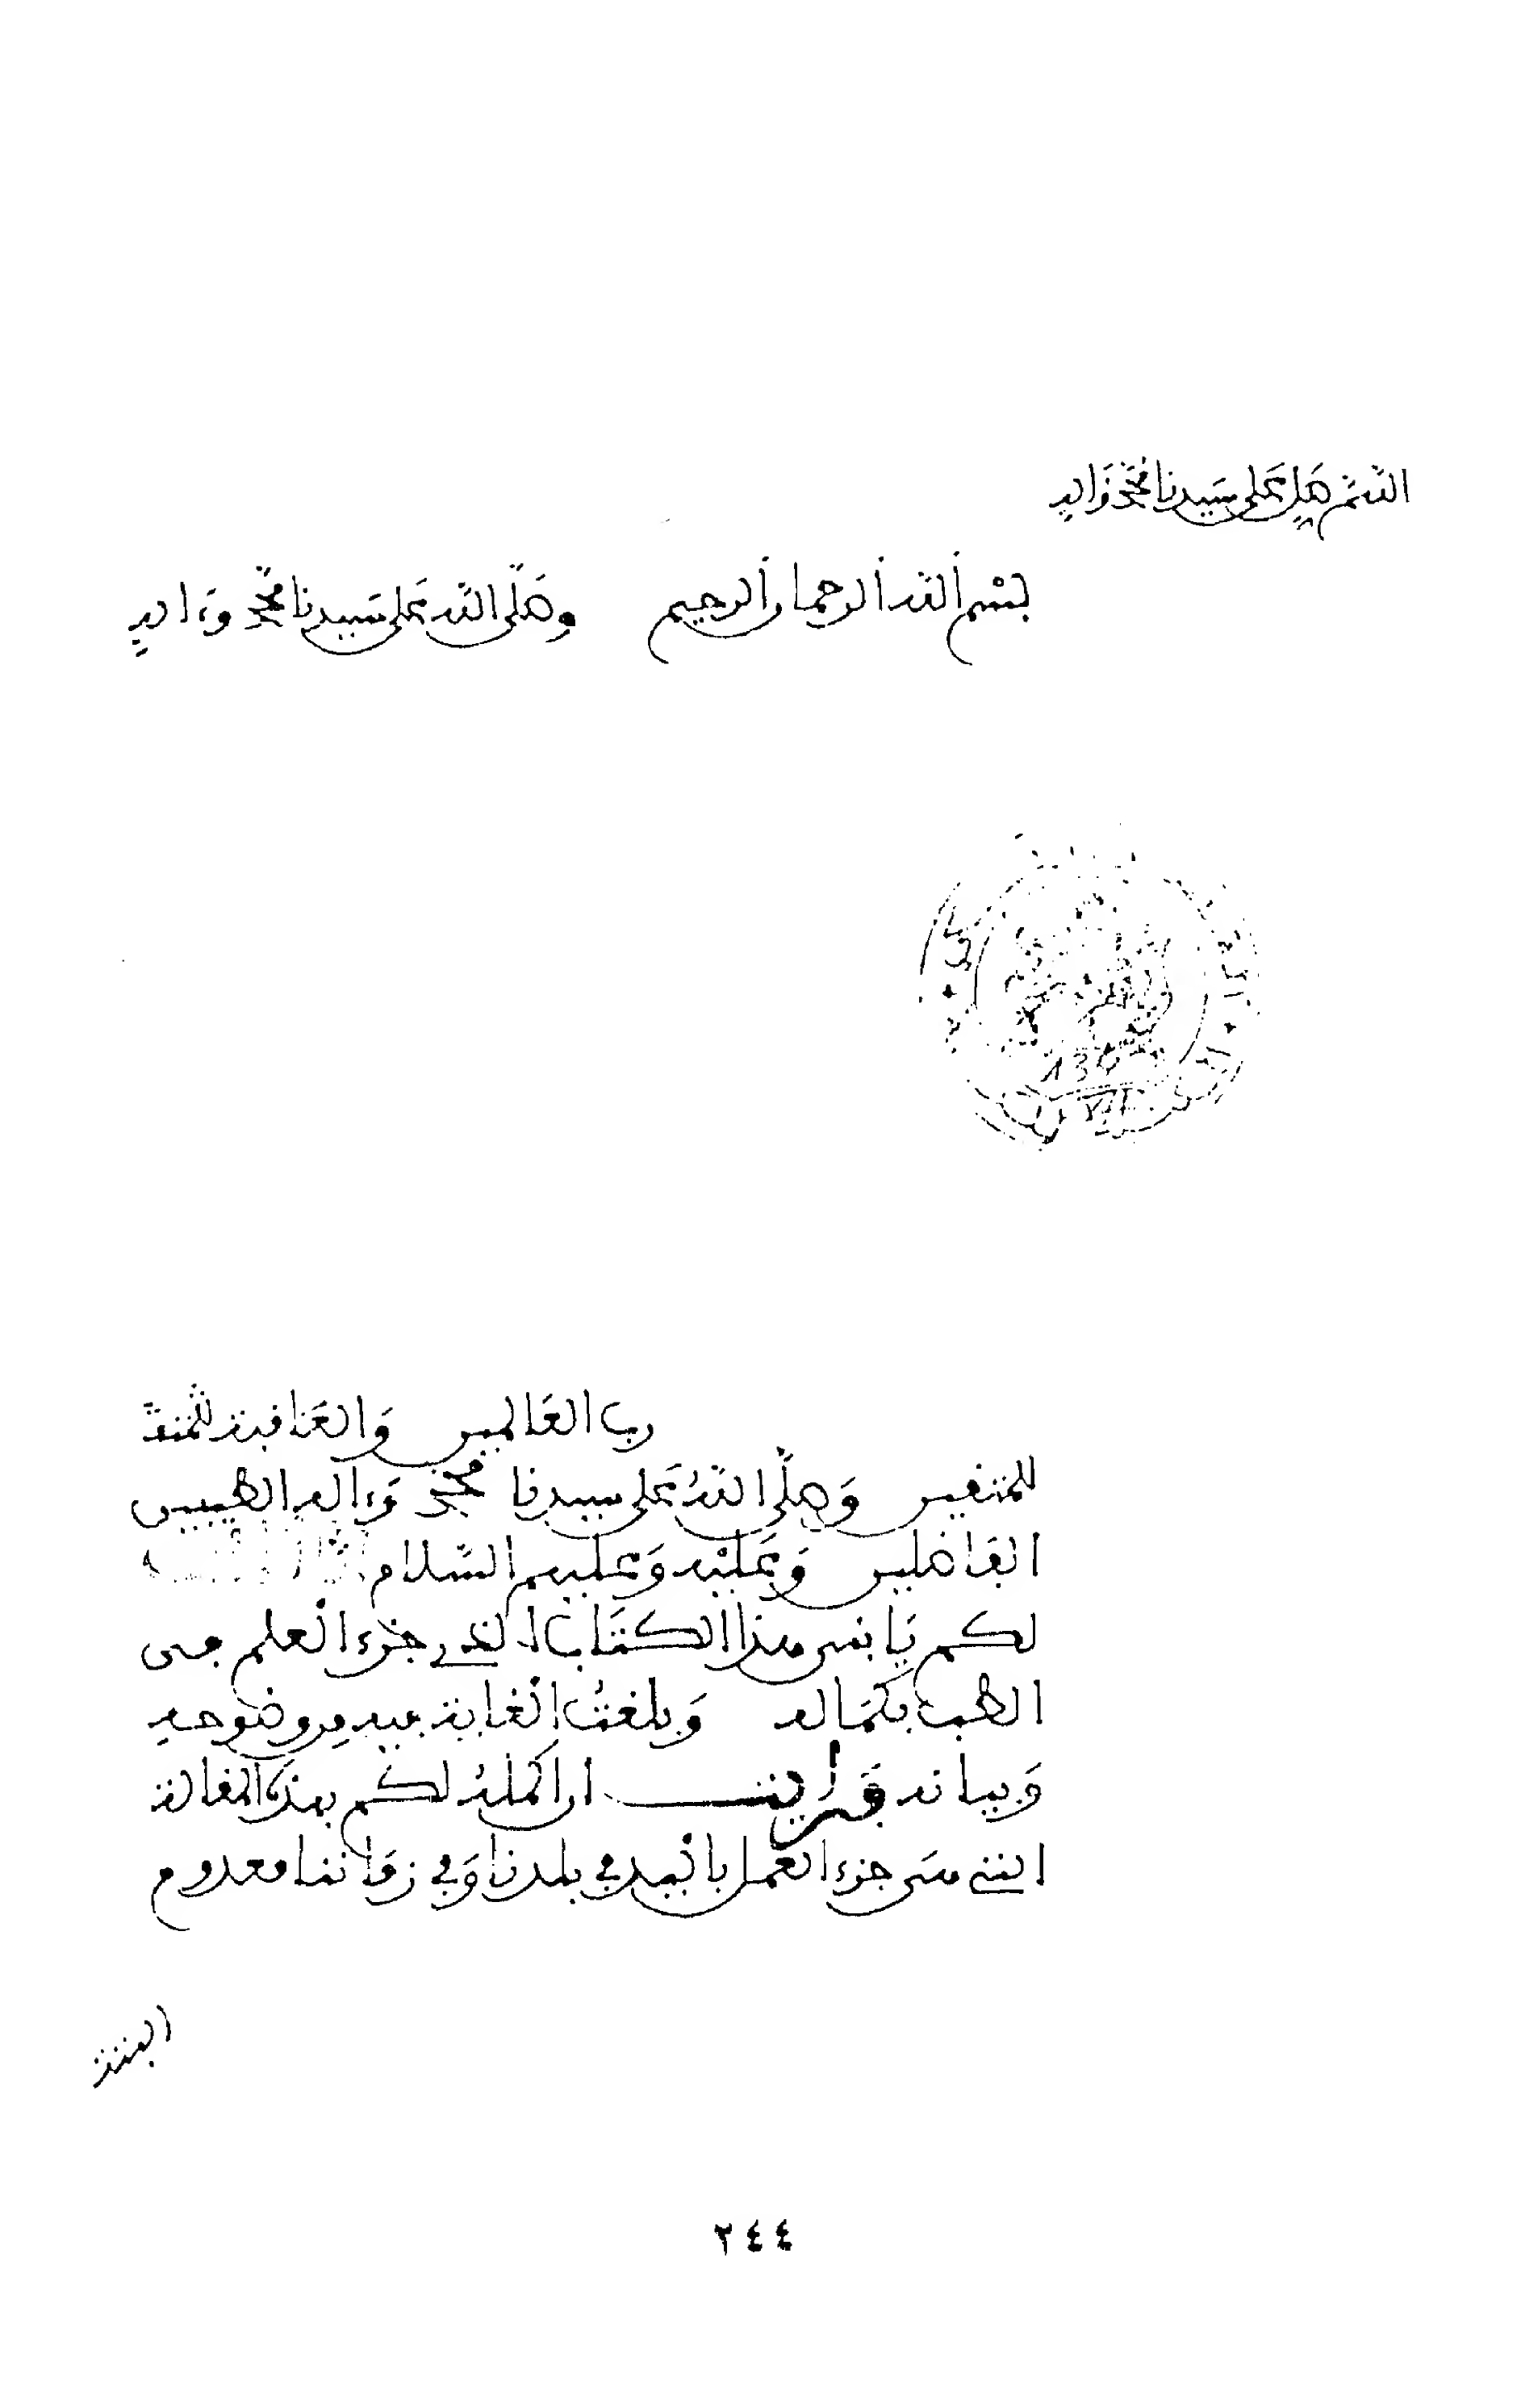 اللهم صل على سيدنا محمد وَاله
بسم الله الرحمان الرحيم وصلى الله على سيدنا محمد وءاله
رب العَالمين وَالعَاقبة للمتقـ
للمتقين وَصلّى اللهُ عَلى سيدنا محمد وَءاله الطيبين
الفاضلين وَعَليْه وَعليهم السّلام
لكم يَا بني هذا الكتَاب الذي جزء العلم من
الطب بكمَاله وَبلغتُ الغاية فيه من وضوحه
وَبيانه فرأيت ان اكمله لكم بهذه المقالة
التي هي جزء العمل باليد في بلدنا وَفي زمَاننا معدوم
البتة
٢٤٤